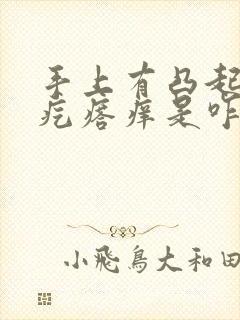 手上有凸起
疙瘩痒是咋
小飛鳥大和田